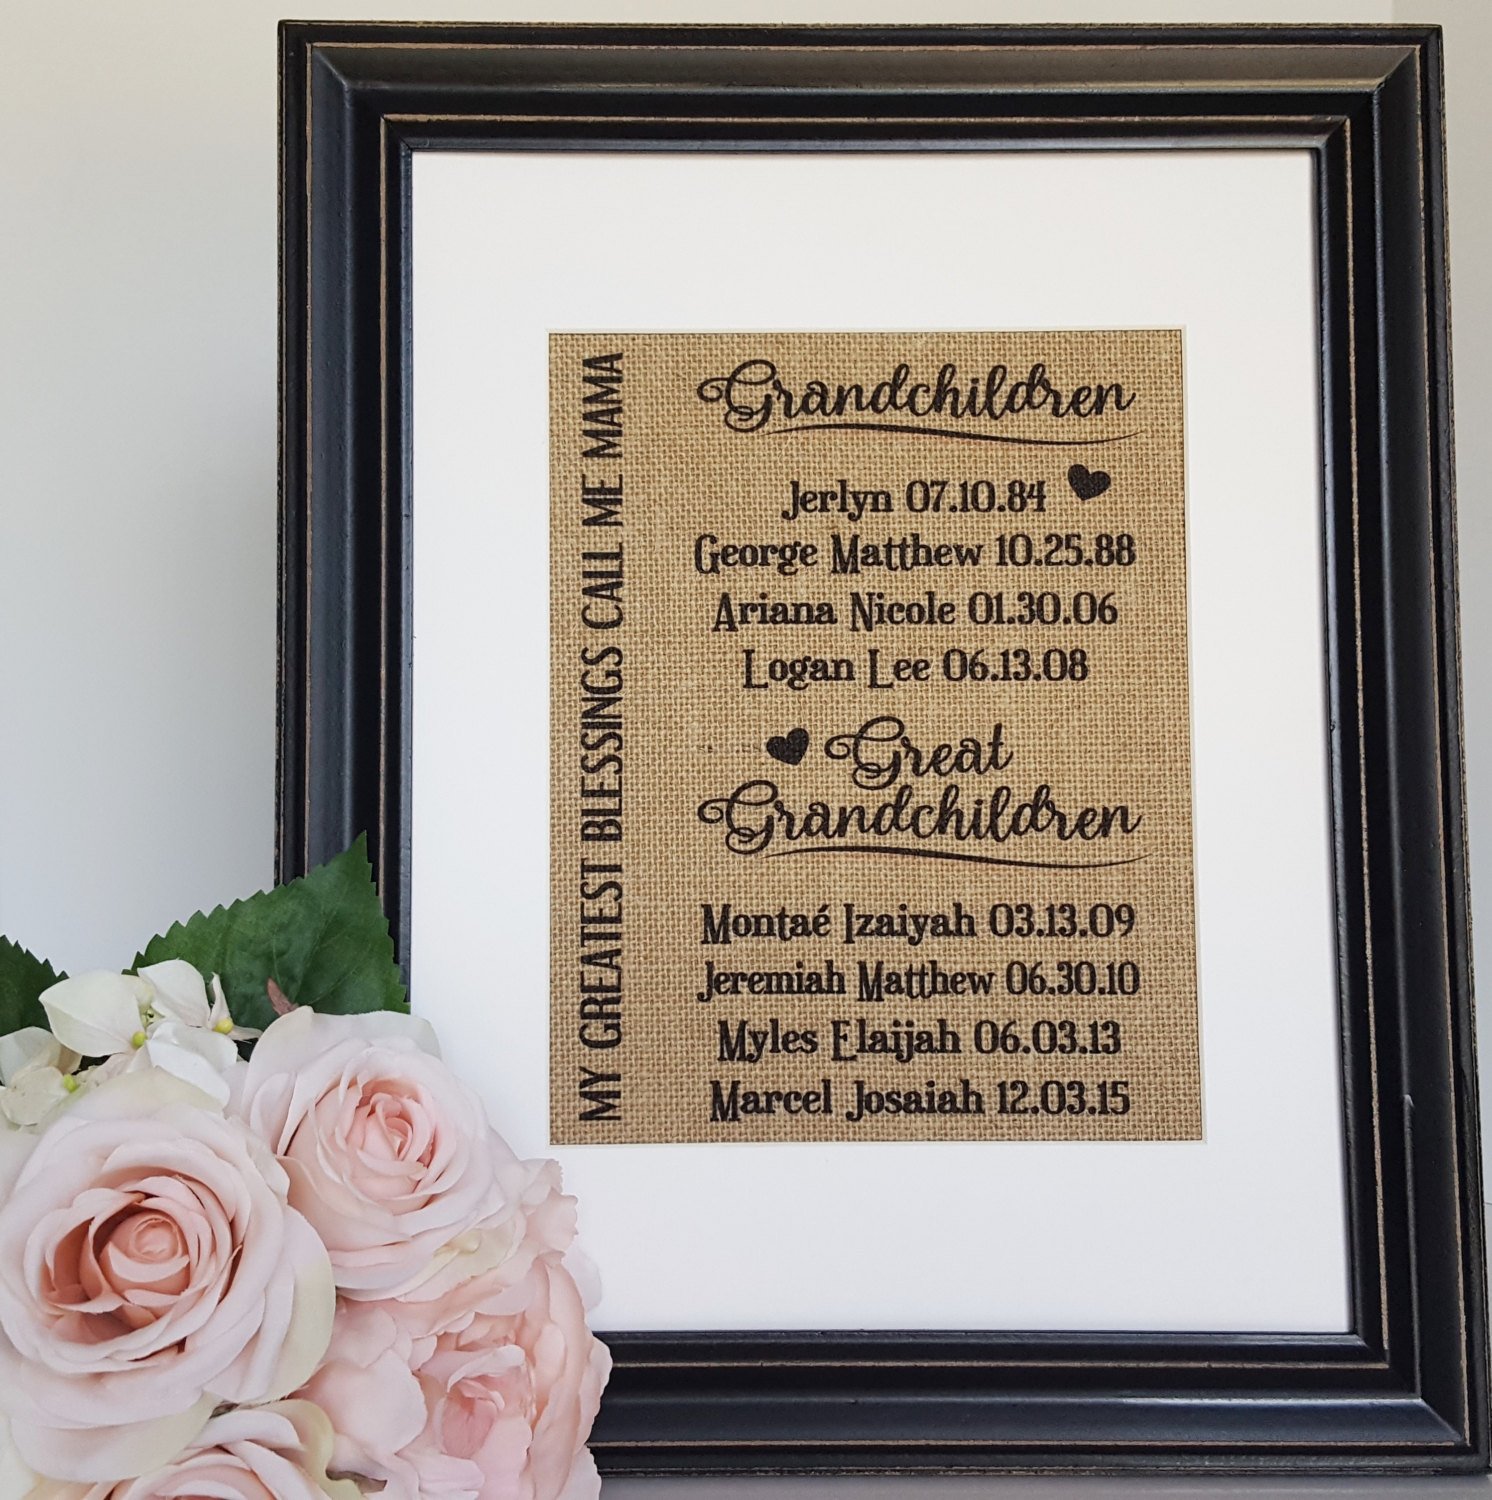 MY GREATEST BLESSINGS CALL ME MAMA
Grandchildren
Jerlyn 07.10.84
George Matthew 10.25.88
Ariana Nicole 01.30.06
Logan Lee 06.13.08
Great
Grandchildren
Montaé Izaiyah 03.13.09
Jeremiah Matthew 06.30.10
Myles Elaijah 06.03.13
Marcel Josaiah 12.03.15